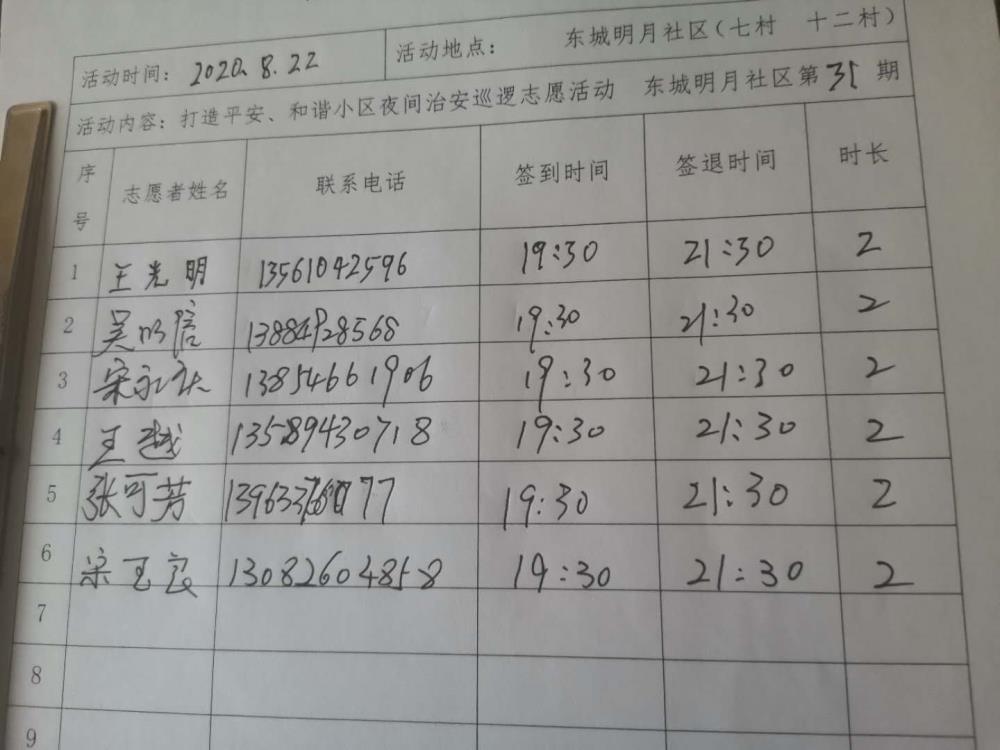 活动时间：2020.8.22 活动地点： 东城明月社区（七村 十二村）
活动内容：打造平安、和谐小区夜间治安巡逻志愿活动 东城明月社区第 期
序号 志愿者姓名 联系电话 签到时间 签退时间 时长
1 王光明 13561042596 19:30 21:30 2
2 吴明信 13884928568 19:30 21:30 2
3 宋永 13854661906 19:30 21:30 2
4 王越 13589430718 19:30 21:30 2
5 张可芳 19:30 21:30 2
6 宋玉良 13082604858 19:30 21:30 2
7
8
9